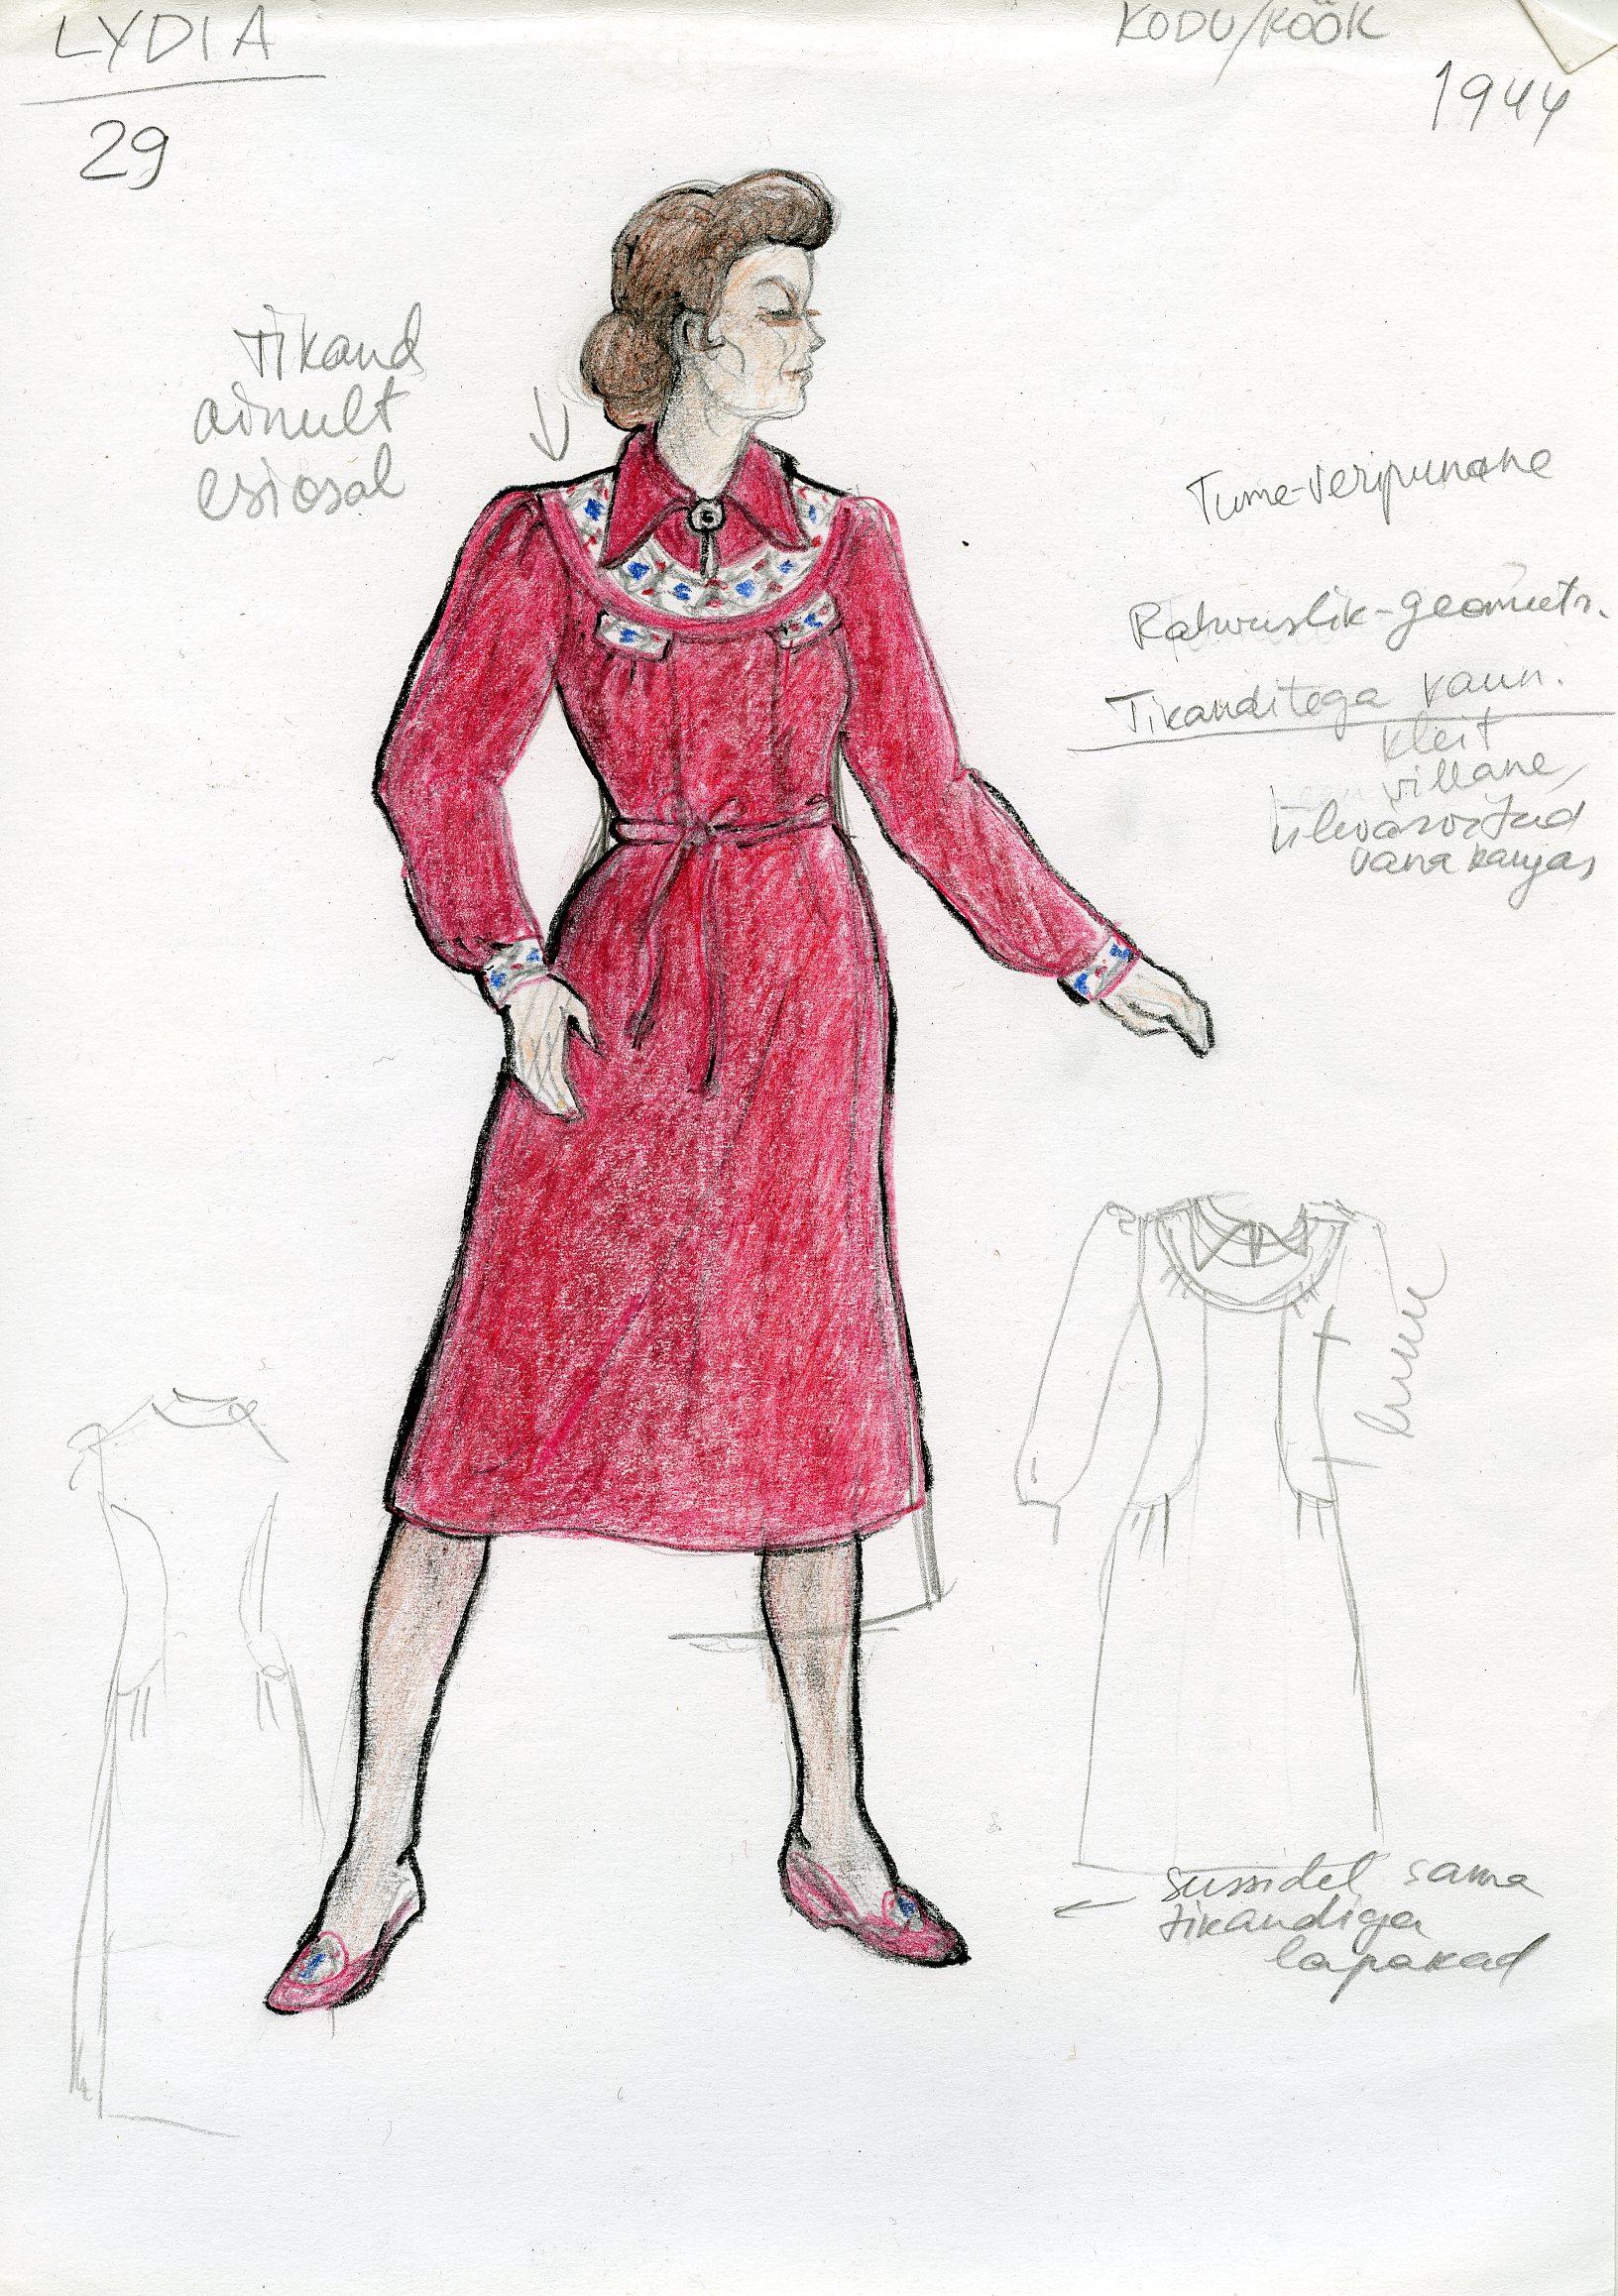 LYDIA
29
KODU/KÖÖK
1944
Tikand
ainult
esiosal
Tume-veripunane
Rahvuslik-geomeetr.
Tikanditega kaun.
kleit
villane,
ühevärvitud
vana kangas
sussidel sama
tikandiga
lapakad